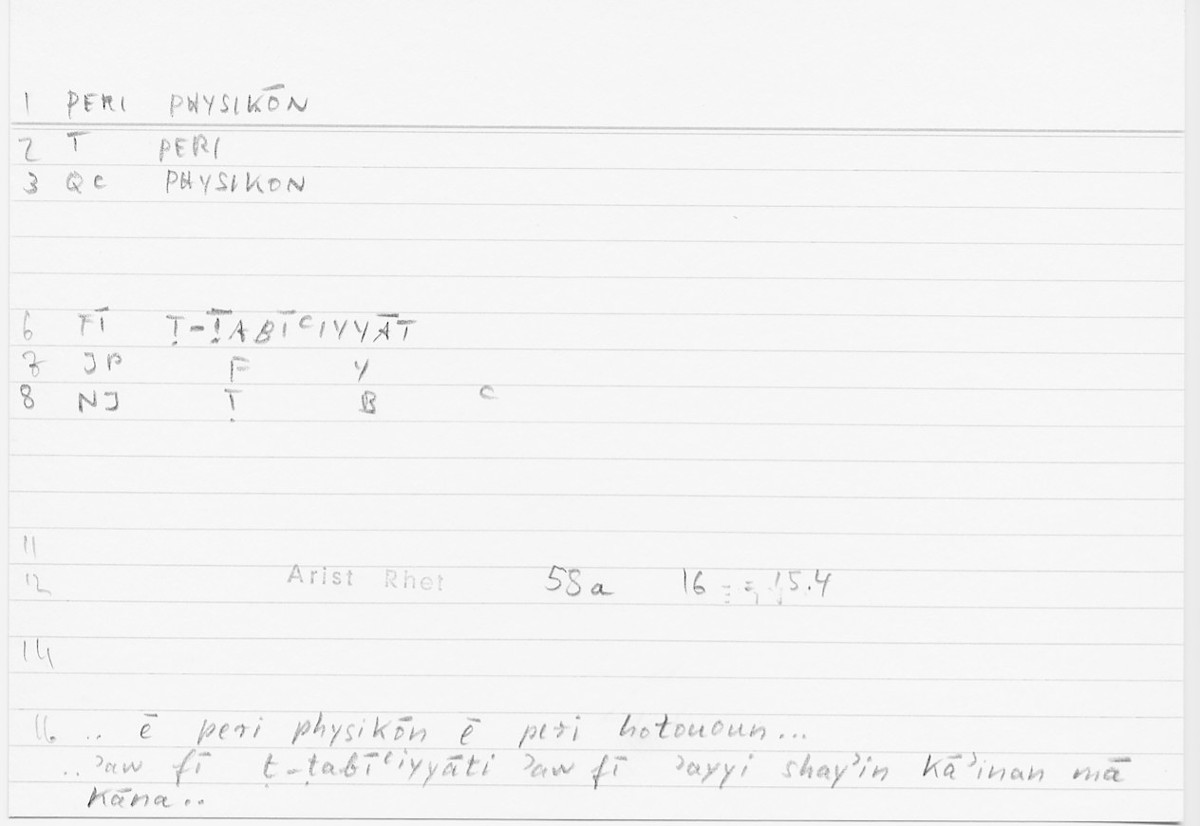 1 PERI PHYSIKŌN
2 T PERI
3 QC PHYSIKON
6 FĪ Ṭ-ṬABĪʿIYYĀT
7 JP F Y
8 NJ Ṭ B ʿ
11
12 Arist Rhet 58a 16 = 15.4
14
16 .. ē peri physikōn ē peri hotououn...
..ʾaw fī ṭ-ṭabīʿiyyāti ʾaw fī ʾayyi shayʾin kāʾinan mā
kāna..